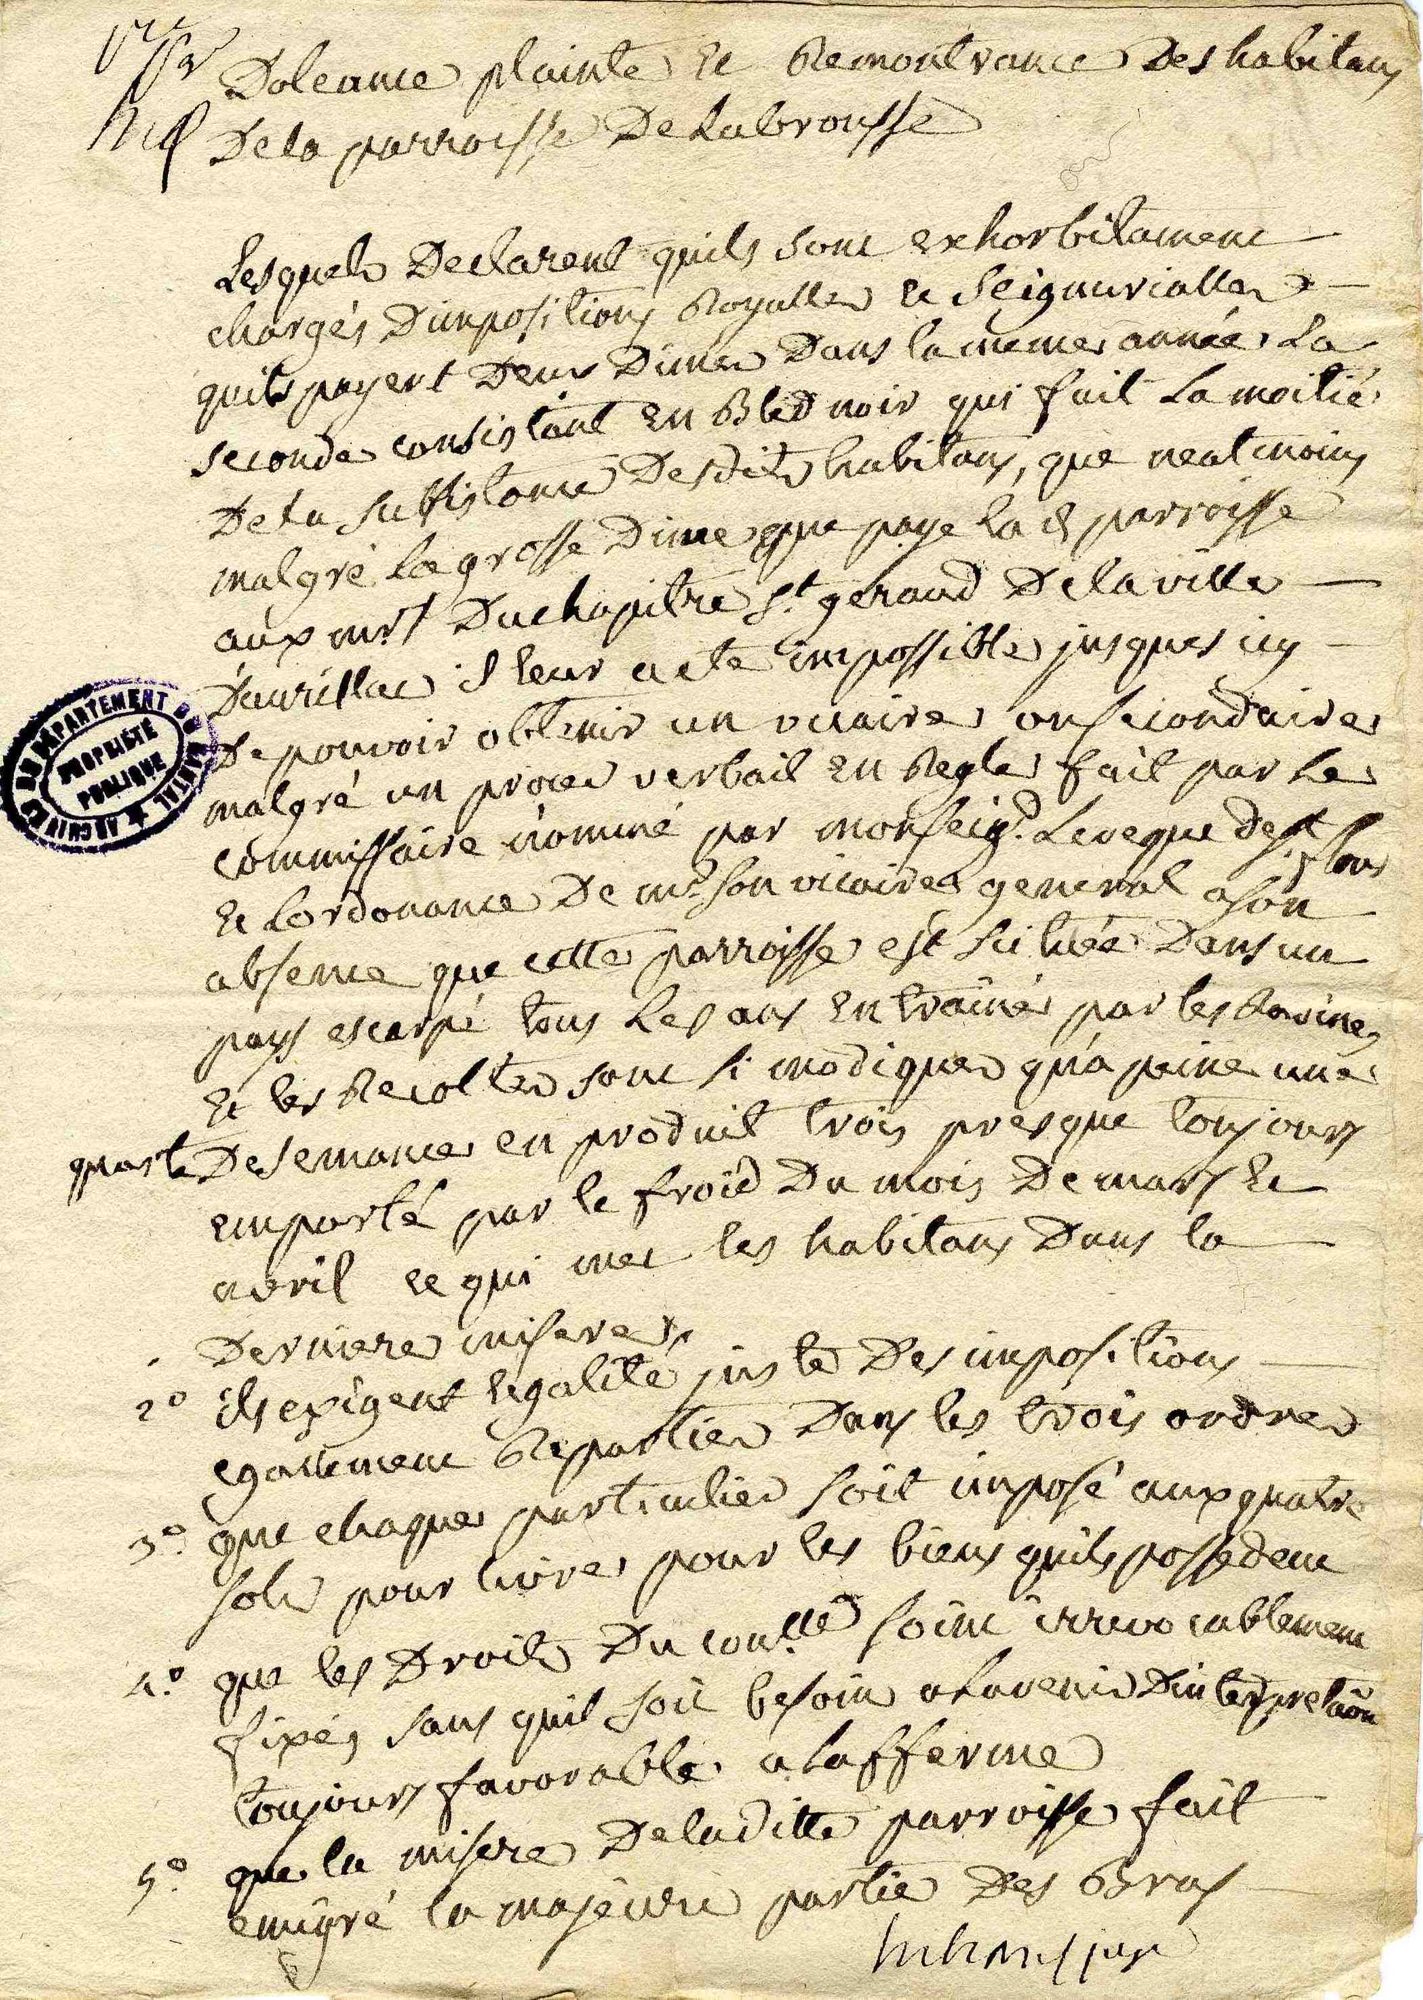 Doleance plainte et Remontrance Des habitans
De la parroisse De Labrousse
Lesquels Declarent quils sont exhorbitament
chargés Dimpositions Royalles et seigneurialles
quils payent Deux Dimes Dans la meme année La
seconde consistant en Bled noir qui fait La moitié
De la subsistance Desdits habitans, que neatmoins
malgré La grosse Dime que paye la d parroisse
aux mrs Du chapitre St geraud De la ville
D'aurillac il leur a eté impossible jusques icy
De pouvoir obtenir un vicaire ou secondaire
malgré un proces verbail en Regle fait par Le
commissaire nommé par monseigr. Leveque de st flour
et Lordonance De mr son vicaire general a son
absence que cette parroisse est scituée Dans un
pays escarpé tous Les ans entrainé par les Ravines
et les Recoltes sont si modiques qu'a peine une
quarte De semance en produit trois presque toujours
emporté par le froid Du mois De mars et
avril ce qui met les habitans Dans la
Derniere misere.
2º ils exigent legalité juste Des impositions
egallement Reparties Dans les trois ordres
3º. que chaque particulier soit imposé aux quatre
sols pour livre pour les biens quils possedent
4º. que les Droits Du conlle soint irrevocablement
fixés sans quil soit besoin a Lavenir Dinterpretaôn
toujours favorable a Lafferme
5º. que la misere De la ditte parroisse fait
emigré la majeure partie Des Bras
ARCHIVES DU DÉPARTEMENT DU CANTAL
PROPRIÉTÉ
PUBLIQUE